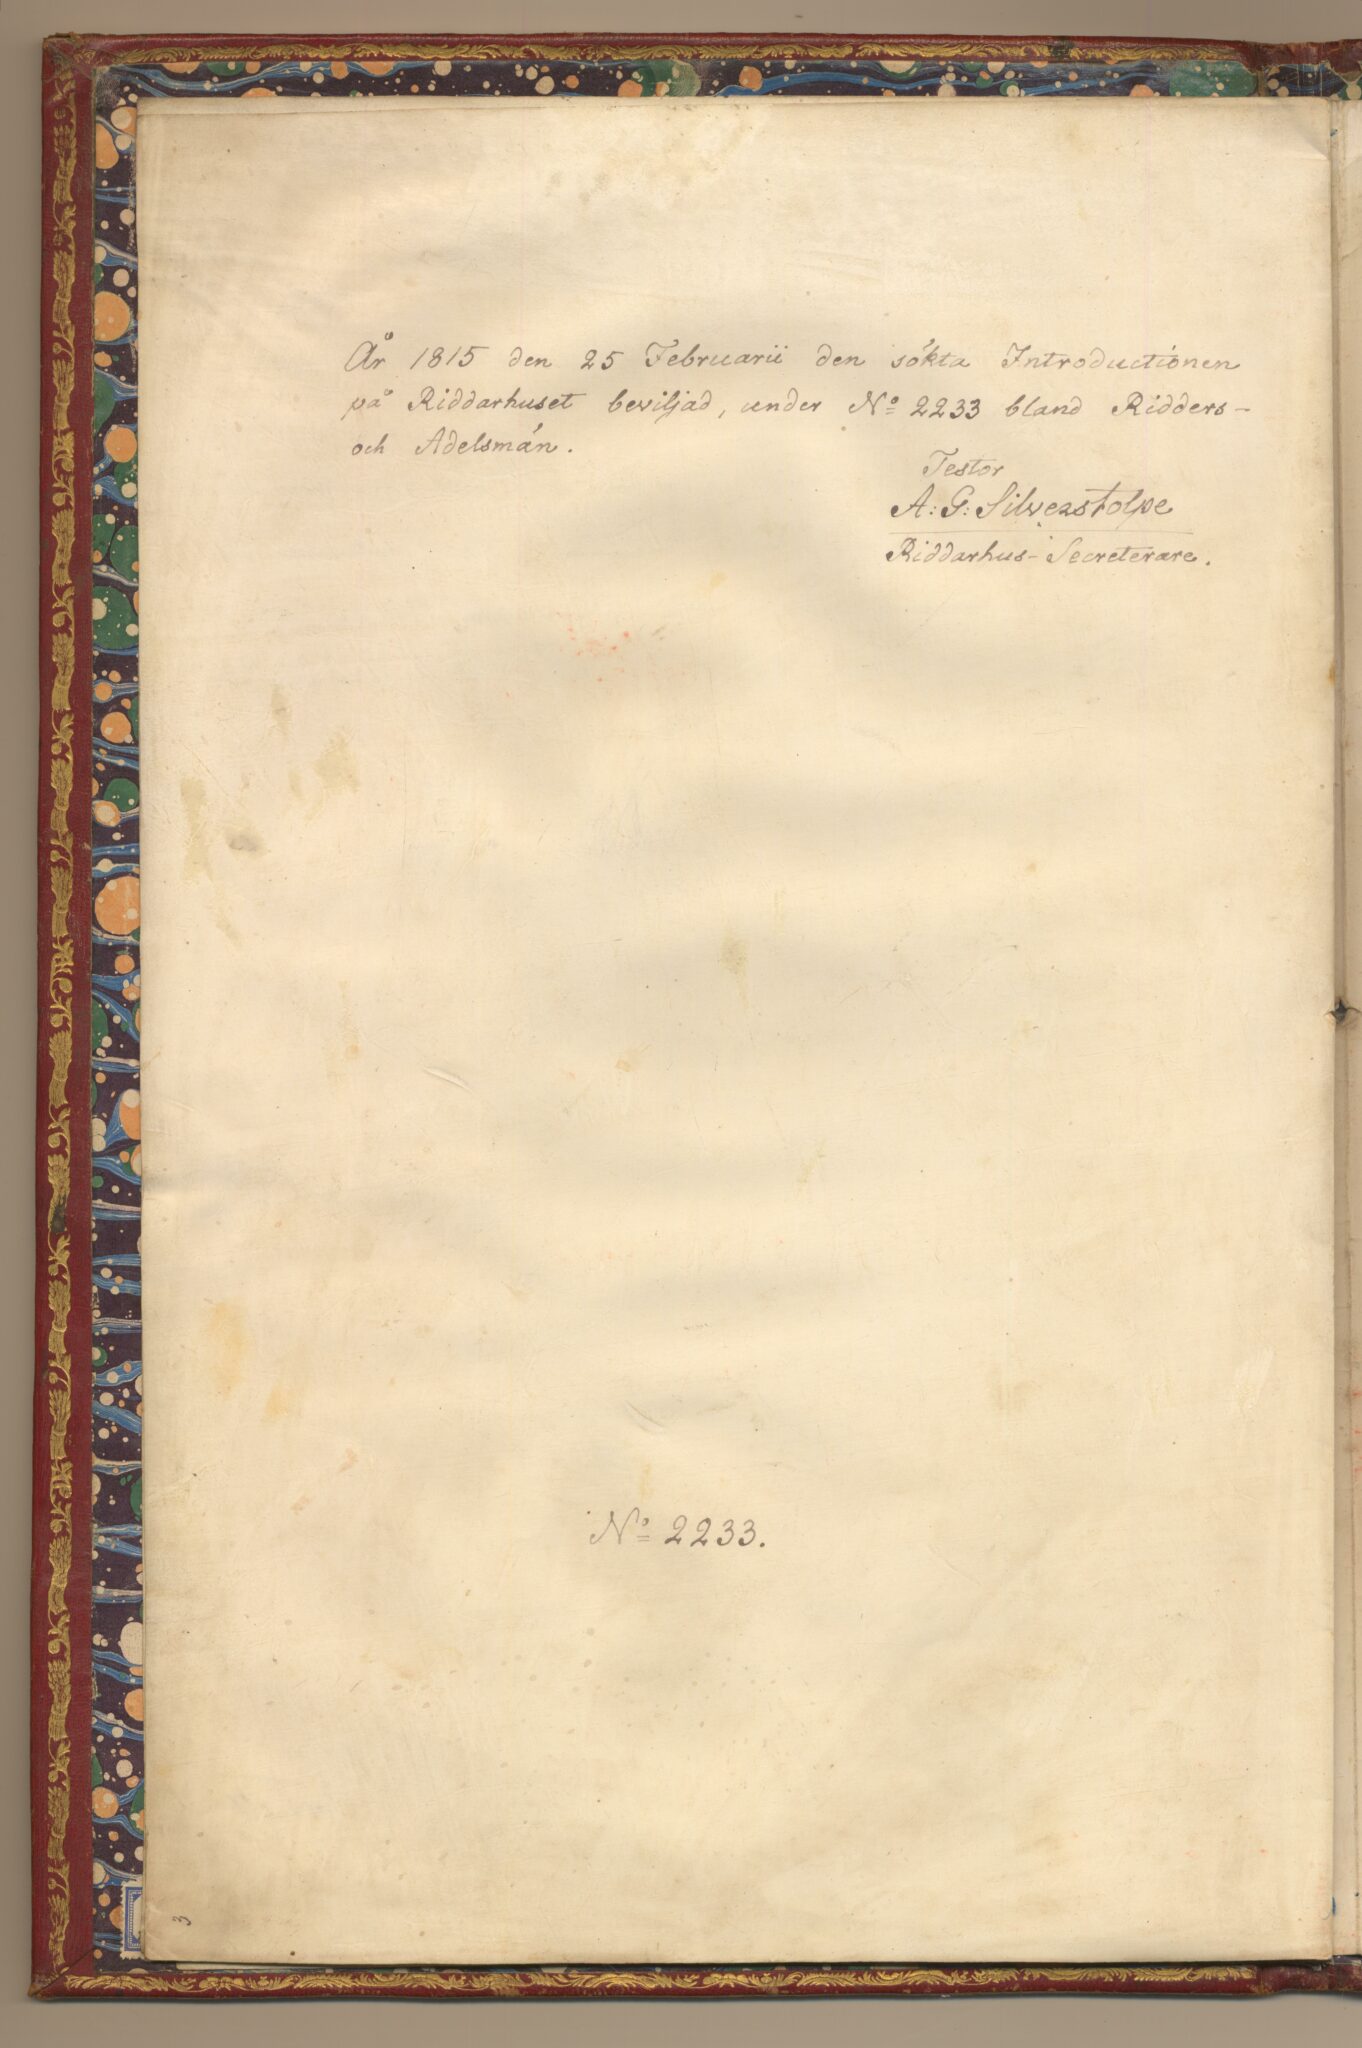 År 1815 den 25 Februarii den sökta Introductionen
på Riddarhuset beviljad, under No 2233 bland Ridders-
och Adelsmän.
Testor
A: G: Silverstolpe
Riddarhus-Secreterare.
No 2233.
3